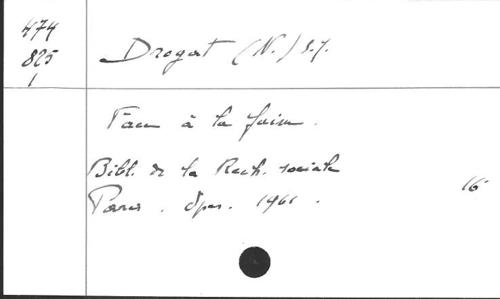 474
825
1
Drogat (N.) s.j.
Face à la faim.
Bibl. de la Rech. sociale
Paris. Spes. 1961.
16